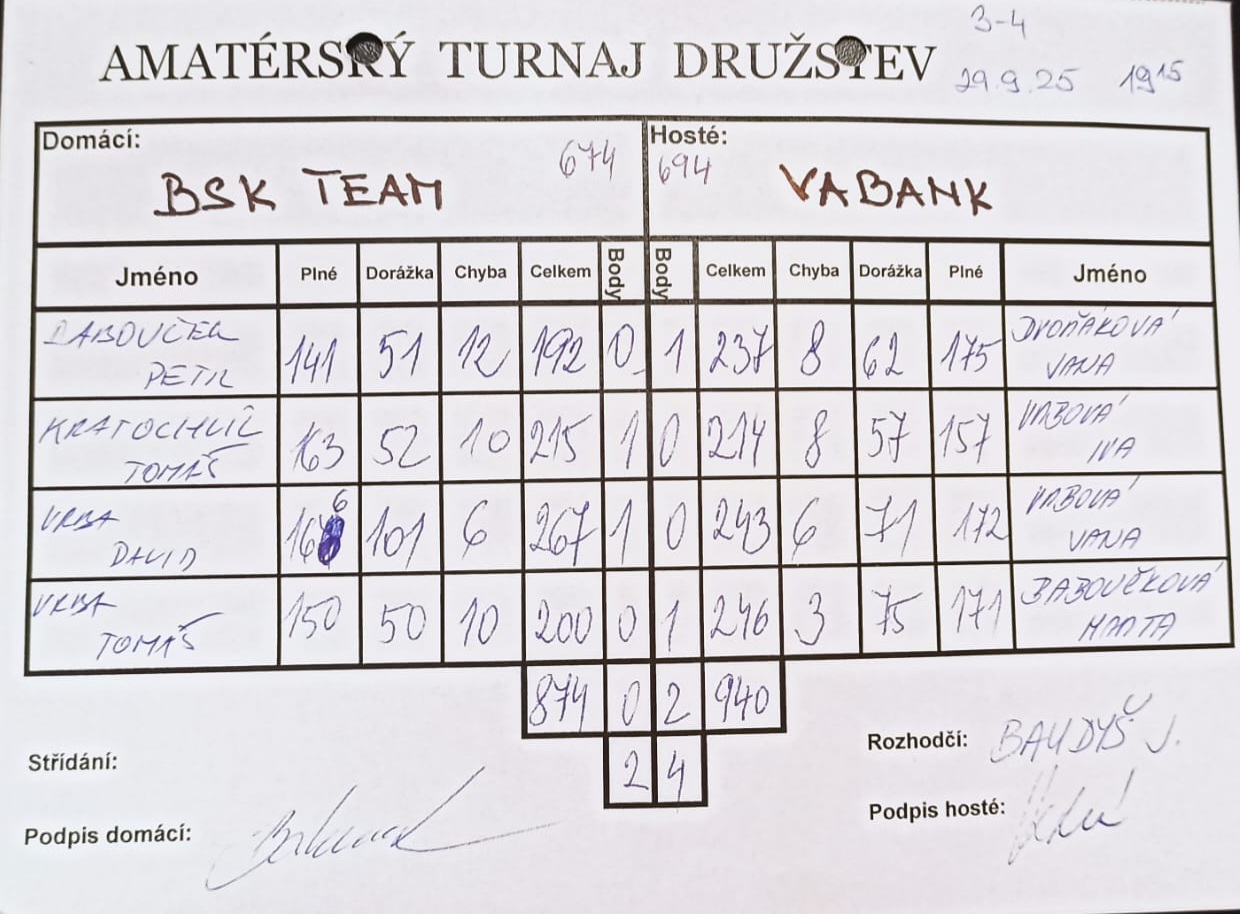 3-4
AMATÉRSKÝ TURNAJ DRUŽSTEV
29.9.25 19¹⁵
Domácí: 674 Hosté: 694
BSK TEAM VABANK
Jméno Plné Dorážka Chyba Celkem Body Body Celkem Chyba Dorážka Plné Jméno
BABOUČEK PETR 141 51 12 192 0 1 237 8 62 175 DVOŘÁKOVÁ JANA
KRATOCHVÍL TOMÁŠ 163 52 10 215 1 0 214 8 57 157 VRBOVÁ IVA
VRBA DAVID 166 101 6 267 1 0 243 6 71 172 VRBOVÁ JANA
VRBA TOMÁŠ 150 50 10 200 0 1 246 3 75 171 BABOUČKOVÁ MARTA
874 0 2 940
2 4
Rozhodčí: BAUDYŠ J.
Střídání:
Podpis hosté:
Podpis domácí: